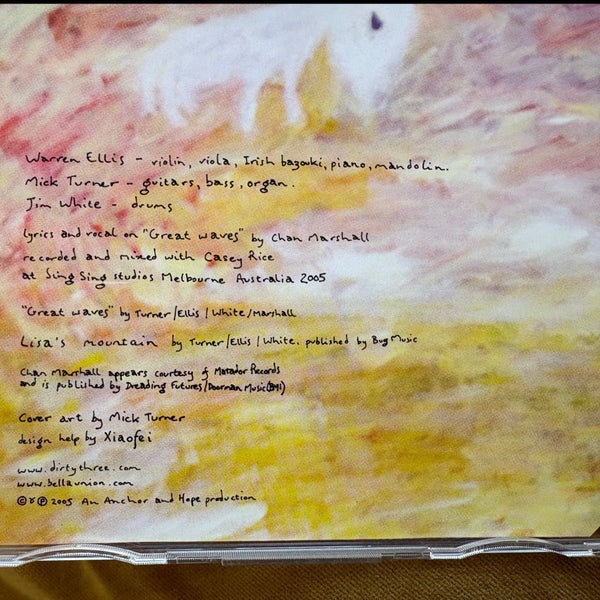 Warren Ellis - violin, viola, Irish bazouki, piano, mandolin.
Mick Turner - guitars, bass, organ.
Jim White - drums
lyrics and vocal on "Great waves" by Chan Marshall
recorded and mixed with Casey Rice
at Sing Sing studios Melbourne Australia 2005
"Great waves" by Turner/Ellis/White/Marshall
Lisa's mountain by Turner/Ellis/White. published by Bug Music
Chan Marshall appears courtesy of Matador Records
and is published by Dreading Futures/Doorman Music(BMI)
Cover art by Mick Turner
design help by Xiaofei
www.dirtythree.com
www.bellaunion.com
© & ℗ 2005 An Anchor and Hope production